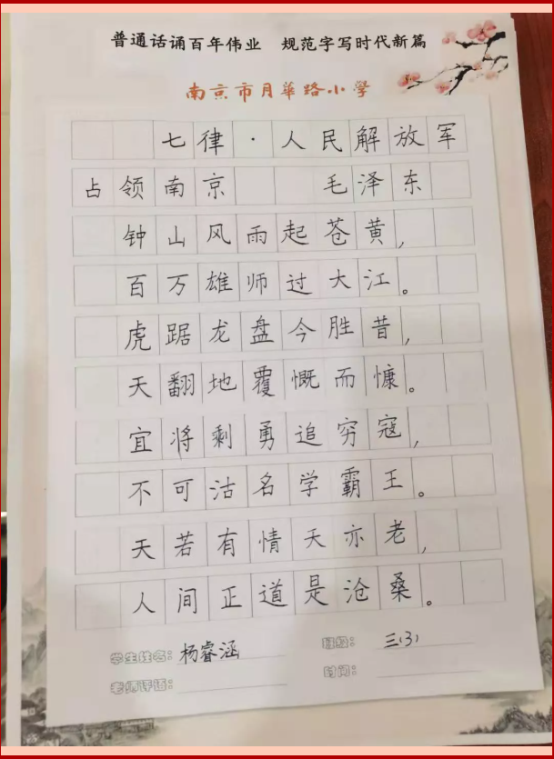 普通话诵百年伟业 规范字写时代新篇
南京市月华路小学
七律·人民解放军
占领南京 毛泽东
钟山风雨起苍黄,
百万雄师过大江。
虎踞龙盘今胜昔,
天翻地覆慨而慷。
宜将剩勇追穷寇,
不可沽名学霸王。
天若有情天亦老,
人间正道是沧桑。
学生姓名: 杨睿涵 班级: 三(3)
老师评语: 时间: